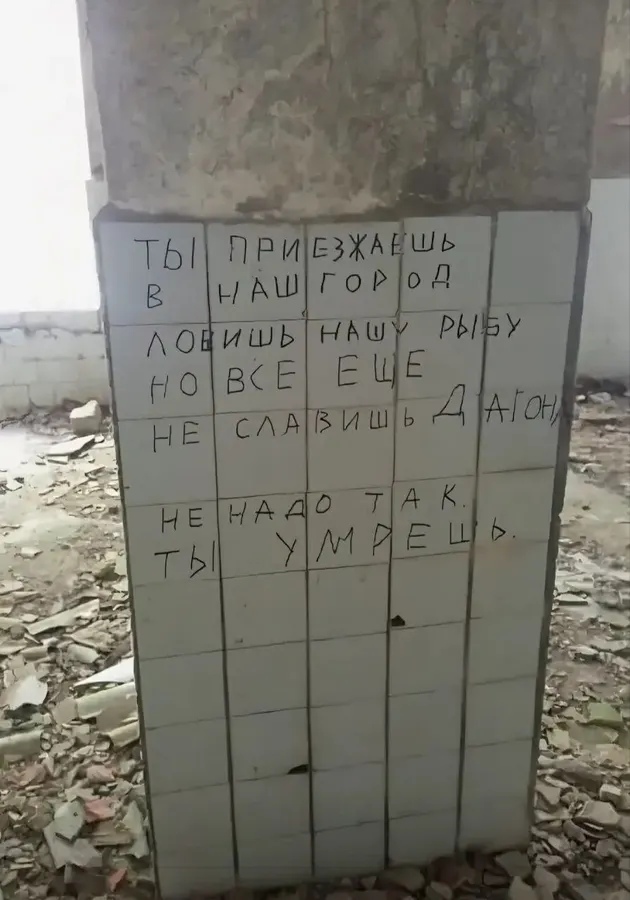 ТЫ ПРИЕЗЖАЕШЬ
В НАШ ГОРОД
ЛОВИШЬ НАШУ РЫБУ
НО ВСЕ ЕЩЕ
НЕ СЛАВИШЬ ДАГОНА
НЕ НАДО ТАК.
ТЫ УМРЕШЬ.